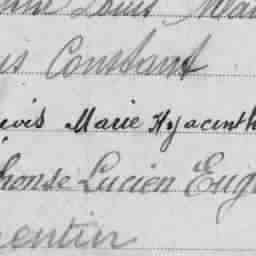 Louis
us Constant
Marie Hyacinth
honse Lucien Eug
entin